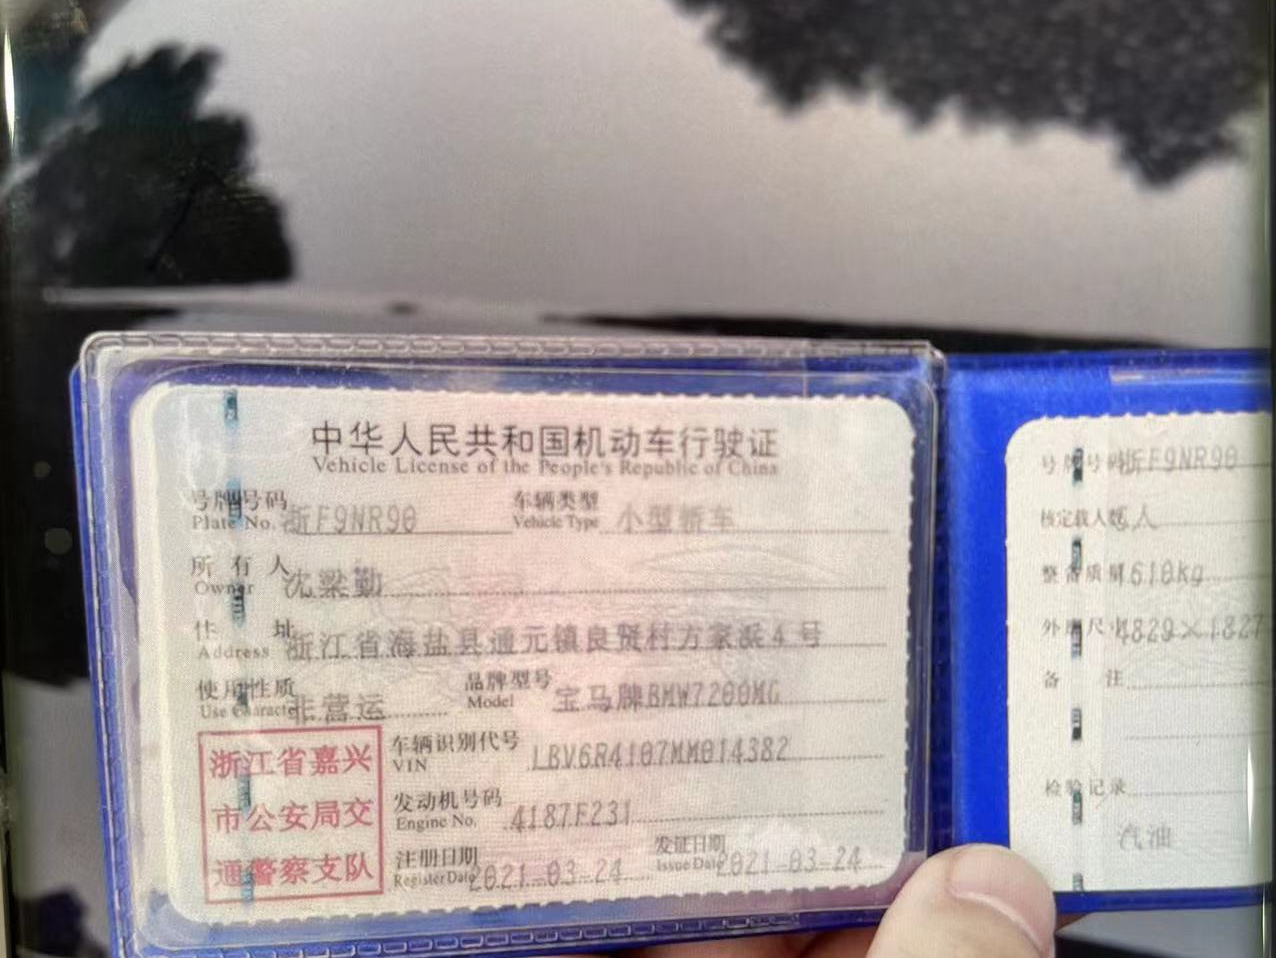 中华人民共和国机动车行驶证
Vehicle License of the People's Republic of China
号牌号码 浙F9NR90 车辆类型 小型轿车
Plate No. Vehicle Type
所有人 沈梁勤
Owner
住址 浙江省海盐县通元镇良贤村方家浜4号
Address
使用性质 非营运 品牌型号 宝马牌BMW7200MG
Use Character Model
浙江省嘉兴
市公安局交
通警察支队
车辆识别代号 LBV6R4107MM014382
VIN
发动机号码 4187F231
Engine No.
注册日期 2021-03-24 发证日期 2021-03-24
Register Date Issue Date
号牌号码 浙F9NR90
核定载人数 人
整备质量 1610kg
外廓尺寸 4829×1827
备注
检验记录
汽油